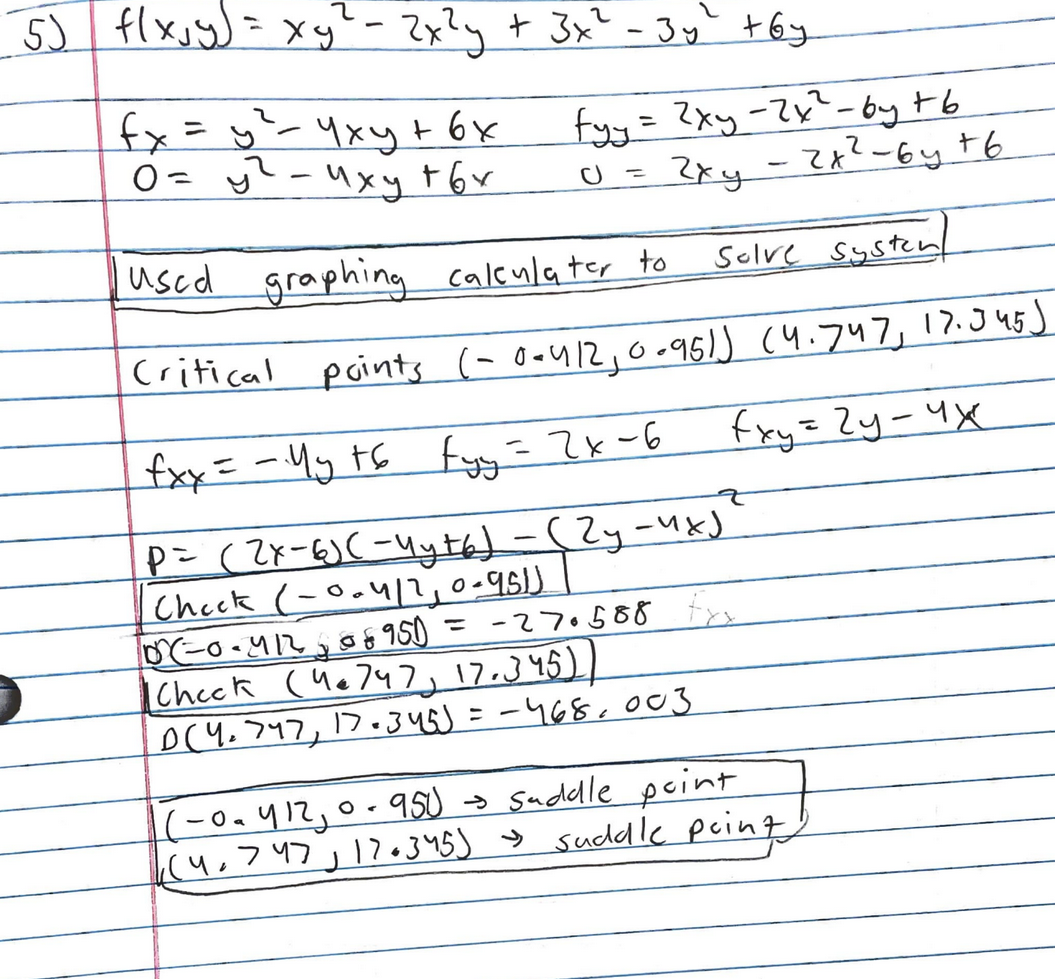 5) f(x,y) = xy² - 2x²y + 3x² - 3y² + 6y
fx = y² - 4xy + 6x fyy = 2xy - 2x² - 6y + 6
0 = y² - 4xy + 6x 0 = 2xy - 2x² - 6y + 6
Used graphing calculater to solve system
Critical points (-0.412, 0.951) (4.747, 17.345)
fxx = -4y + 6 fyy = 2x - 6 fxy = 2y - 4x
D = (2x-6)(-4y+6) - (2y-4x)²
Check (-0.412, 0.951)
D(-0.412, 0.951) = -27.588 fxx
Check (4.747, 17.345)
D(4.747, 17.345) = -468.003
(-0.412, 0.951) → saddle point
(4.747, 17.345) → saddle point